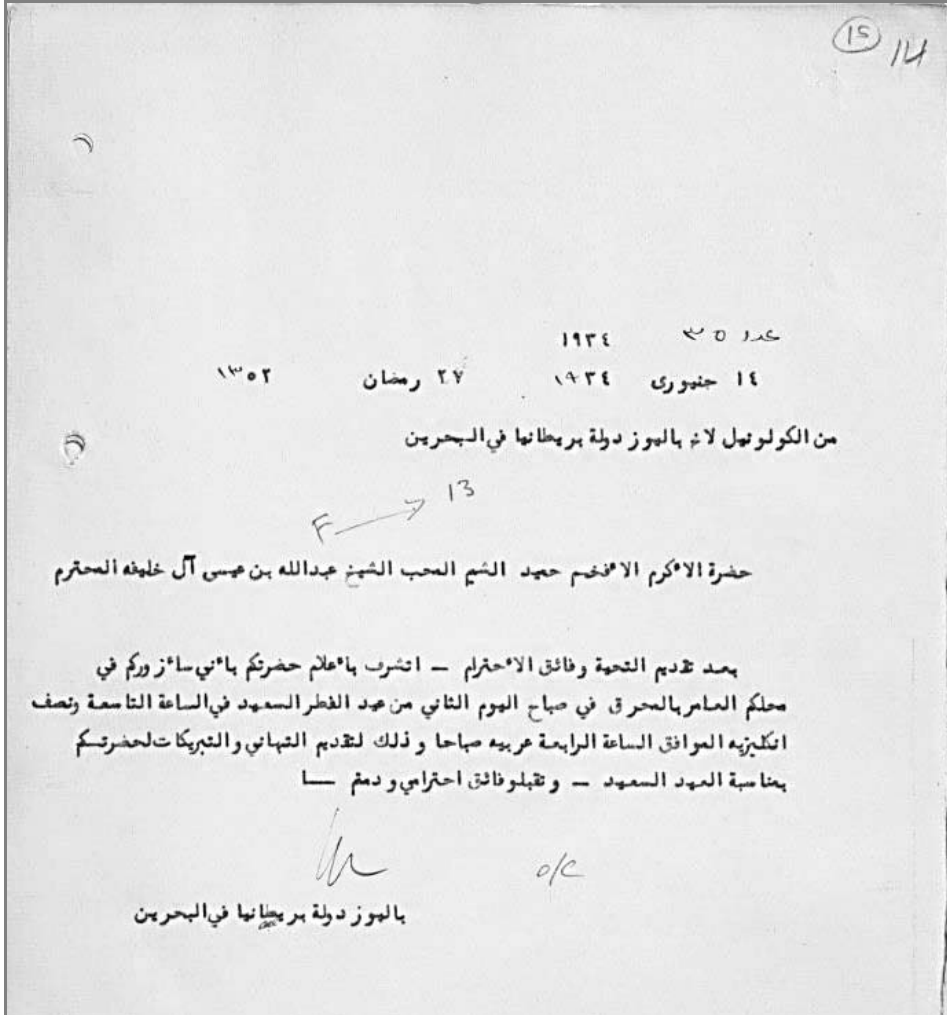 15 14
عدد ٣٥ ١٩٣٤
١٤ جنيورى ١٩٣٤ ٢٧ رمضان ١٣٥٢
من الكولونيل لاخ باليوز دولة بريطانيا في البحرين
F → 13
حضرة الاٴكرم الاٴفخم حميد الشيم المحب الشيخ عبدالله بن عيسى آل خليفه المحترم
بعد تقديم التحية وفائق الاٴحترام ــ اتشرف باٴعلام حضرتكم باٴني ساٴزوركم في
محلكم العامر بالمحرق في صباح اليوم الثاني من عيد الفطر السعيد في الساعة التاسعة ونصف
انكليزيه الموافق الساعة الرابعة عربيه صباحا وذلك لتقديم التهاني والتبريكات لحضرتكم
بمناسبة العيد السعيد ــ وتقبلو فائق احترامي ودمتم ــا
o/c
باليوز دولة بريطانيا في البحرين